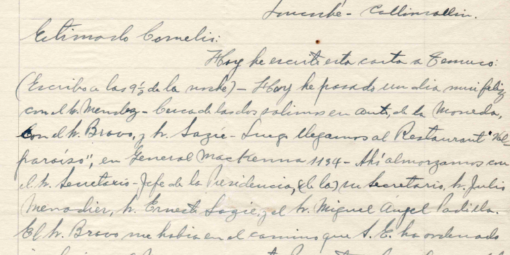 Estimado Cornelio:
Hoy he escrito esta carta a Temuco:
(Escribo a las 9½ de la noche) – Hoy he pasado un día muy feliz
con el Sr. Mendez – cerca de las dos salimos en auto, de la Moneda,
con el Sr. Bravo, y Sr. Lazié – Luego llegamos al Restaurant "Val-
paraíso", en General MacKenna 1134 – Ahí almorzamos con
el Sr. Secretario – Jefe de la Presidencia, (de la) su secretario, Sr. Julio
Sr. Ernesto Lazié, y el Sr. Miguel Angel Padilla.
El Sr. Bravo me había en el camino que S. E. ha ordenado